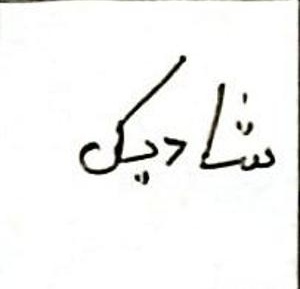 شادیک